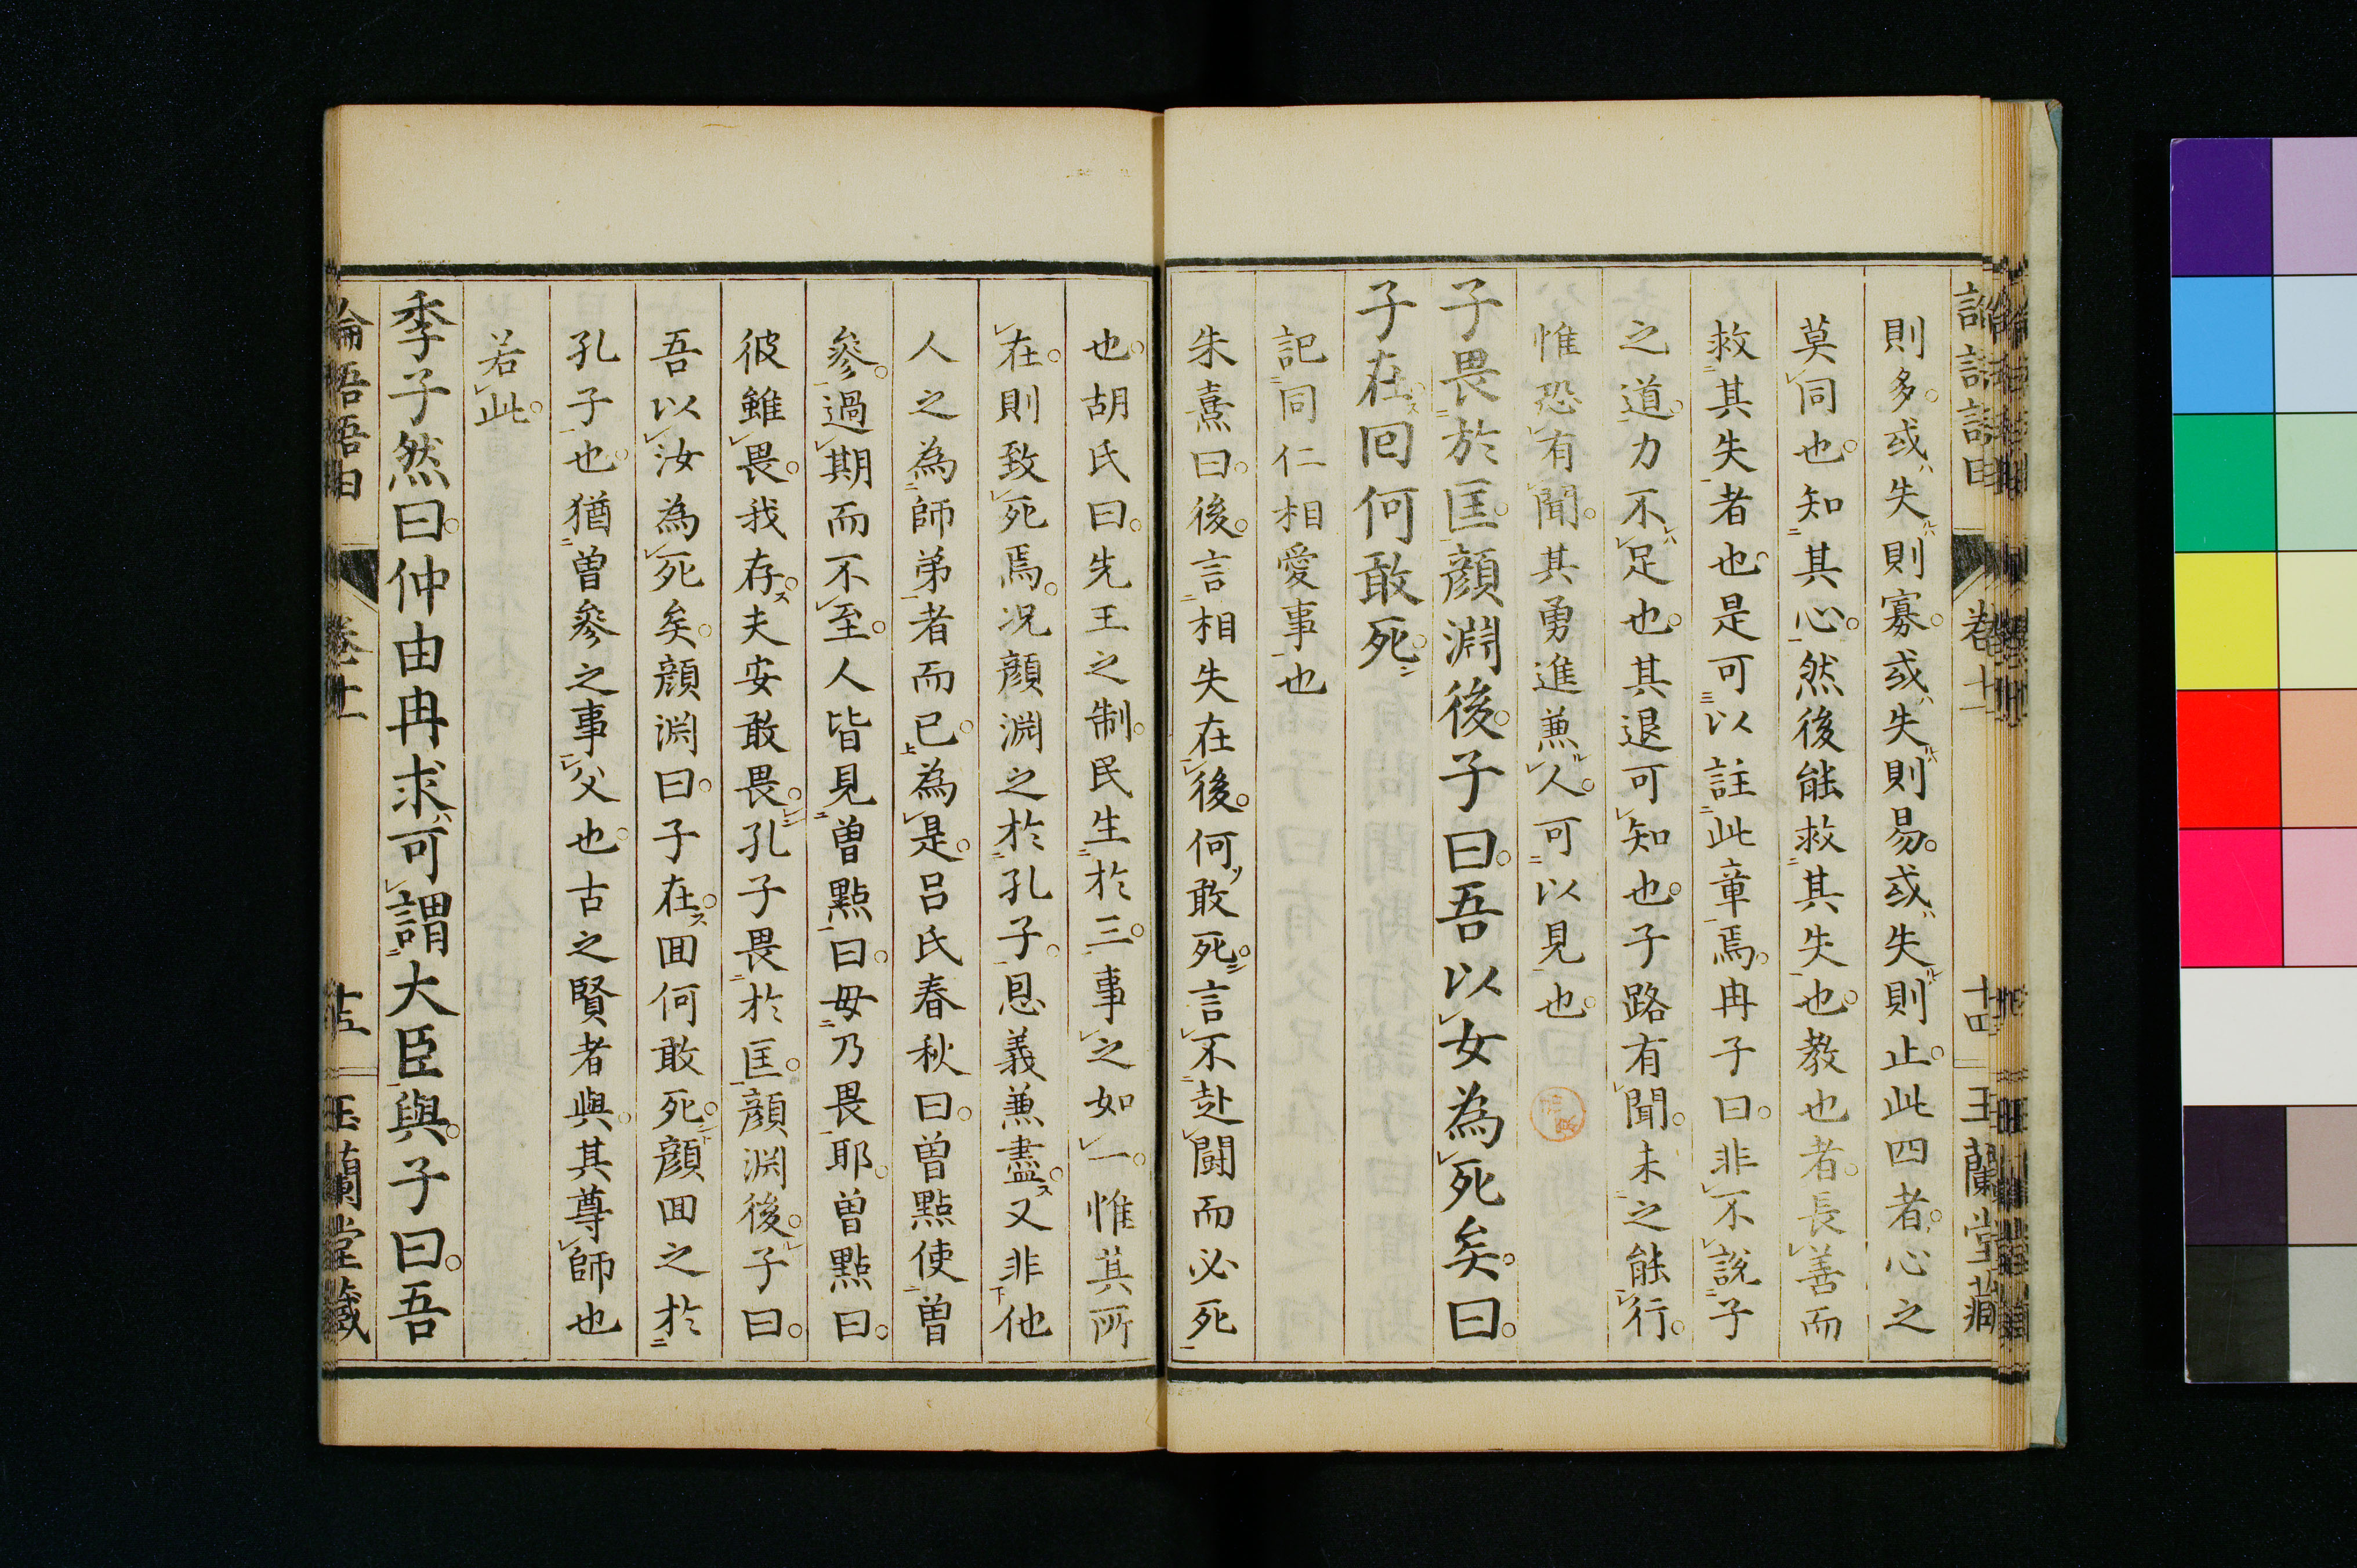 則多或失則寡或失則易或失則止此四者心之
莫同也知其心然後能救其失也教也者長善而
救其失者也是可以註此章焉冉子曰非不說子
之道力不足也其退可知也子路有聞未之能行
惟恐有聞其勇進兼人可以見也
子畏於匡顏淵後子曰吾以女為死矣曰
子在回何敢死
記同仁相愛事也
朱熹曰後言相失在後何敢死言不赴鬪而必死
也胡氏曰先王之制民生於三事之如一惟其所
在則致死焉况顏淵之於孔子恩義兼盡又非他
人之為師弟者而已為是呂氏春秋曰曾點使曾
參過期而不至人皆見曾點曰毋乃畏耶曾點曰
彼雖畏我存夫安敢畏孔子畏於匡顏淵後子曰
吾以汝為死矣顏淵曰子在回何敢死顏回之於
孔子也猶曾參之事父也古之賢者與其尊師也
若此
季子然曰仲由冉求可謂大臣與子曰吾